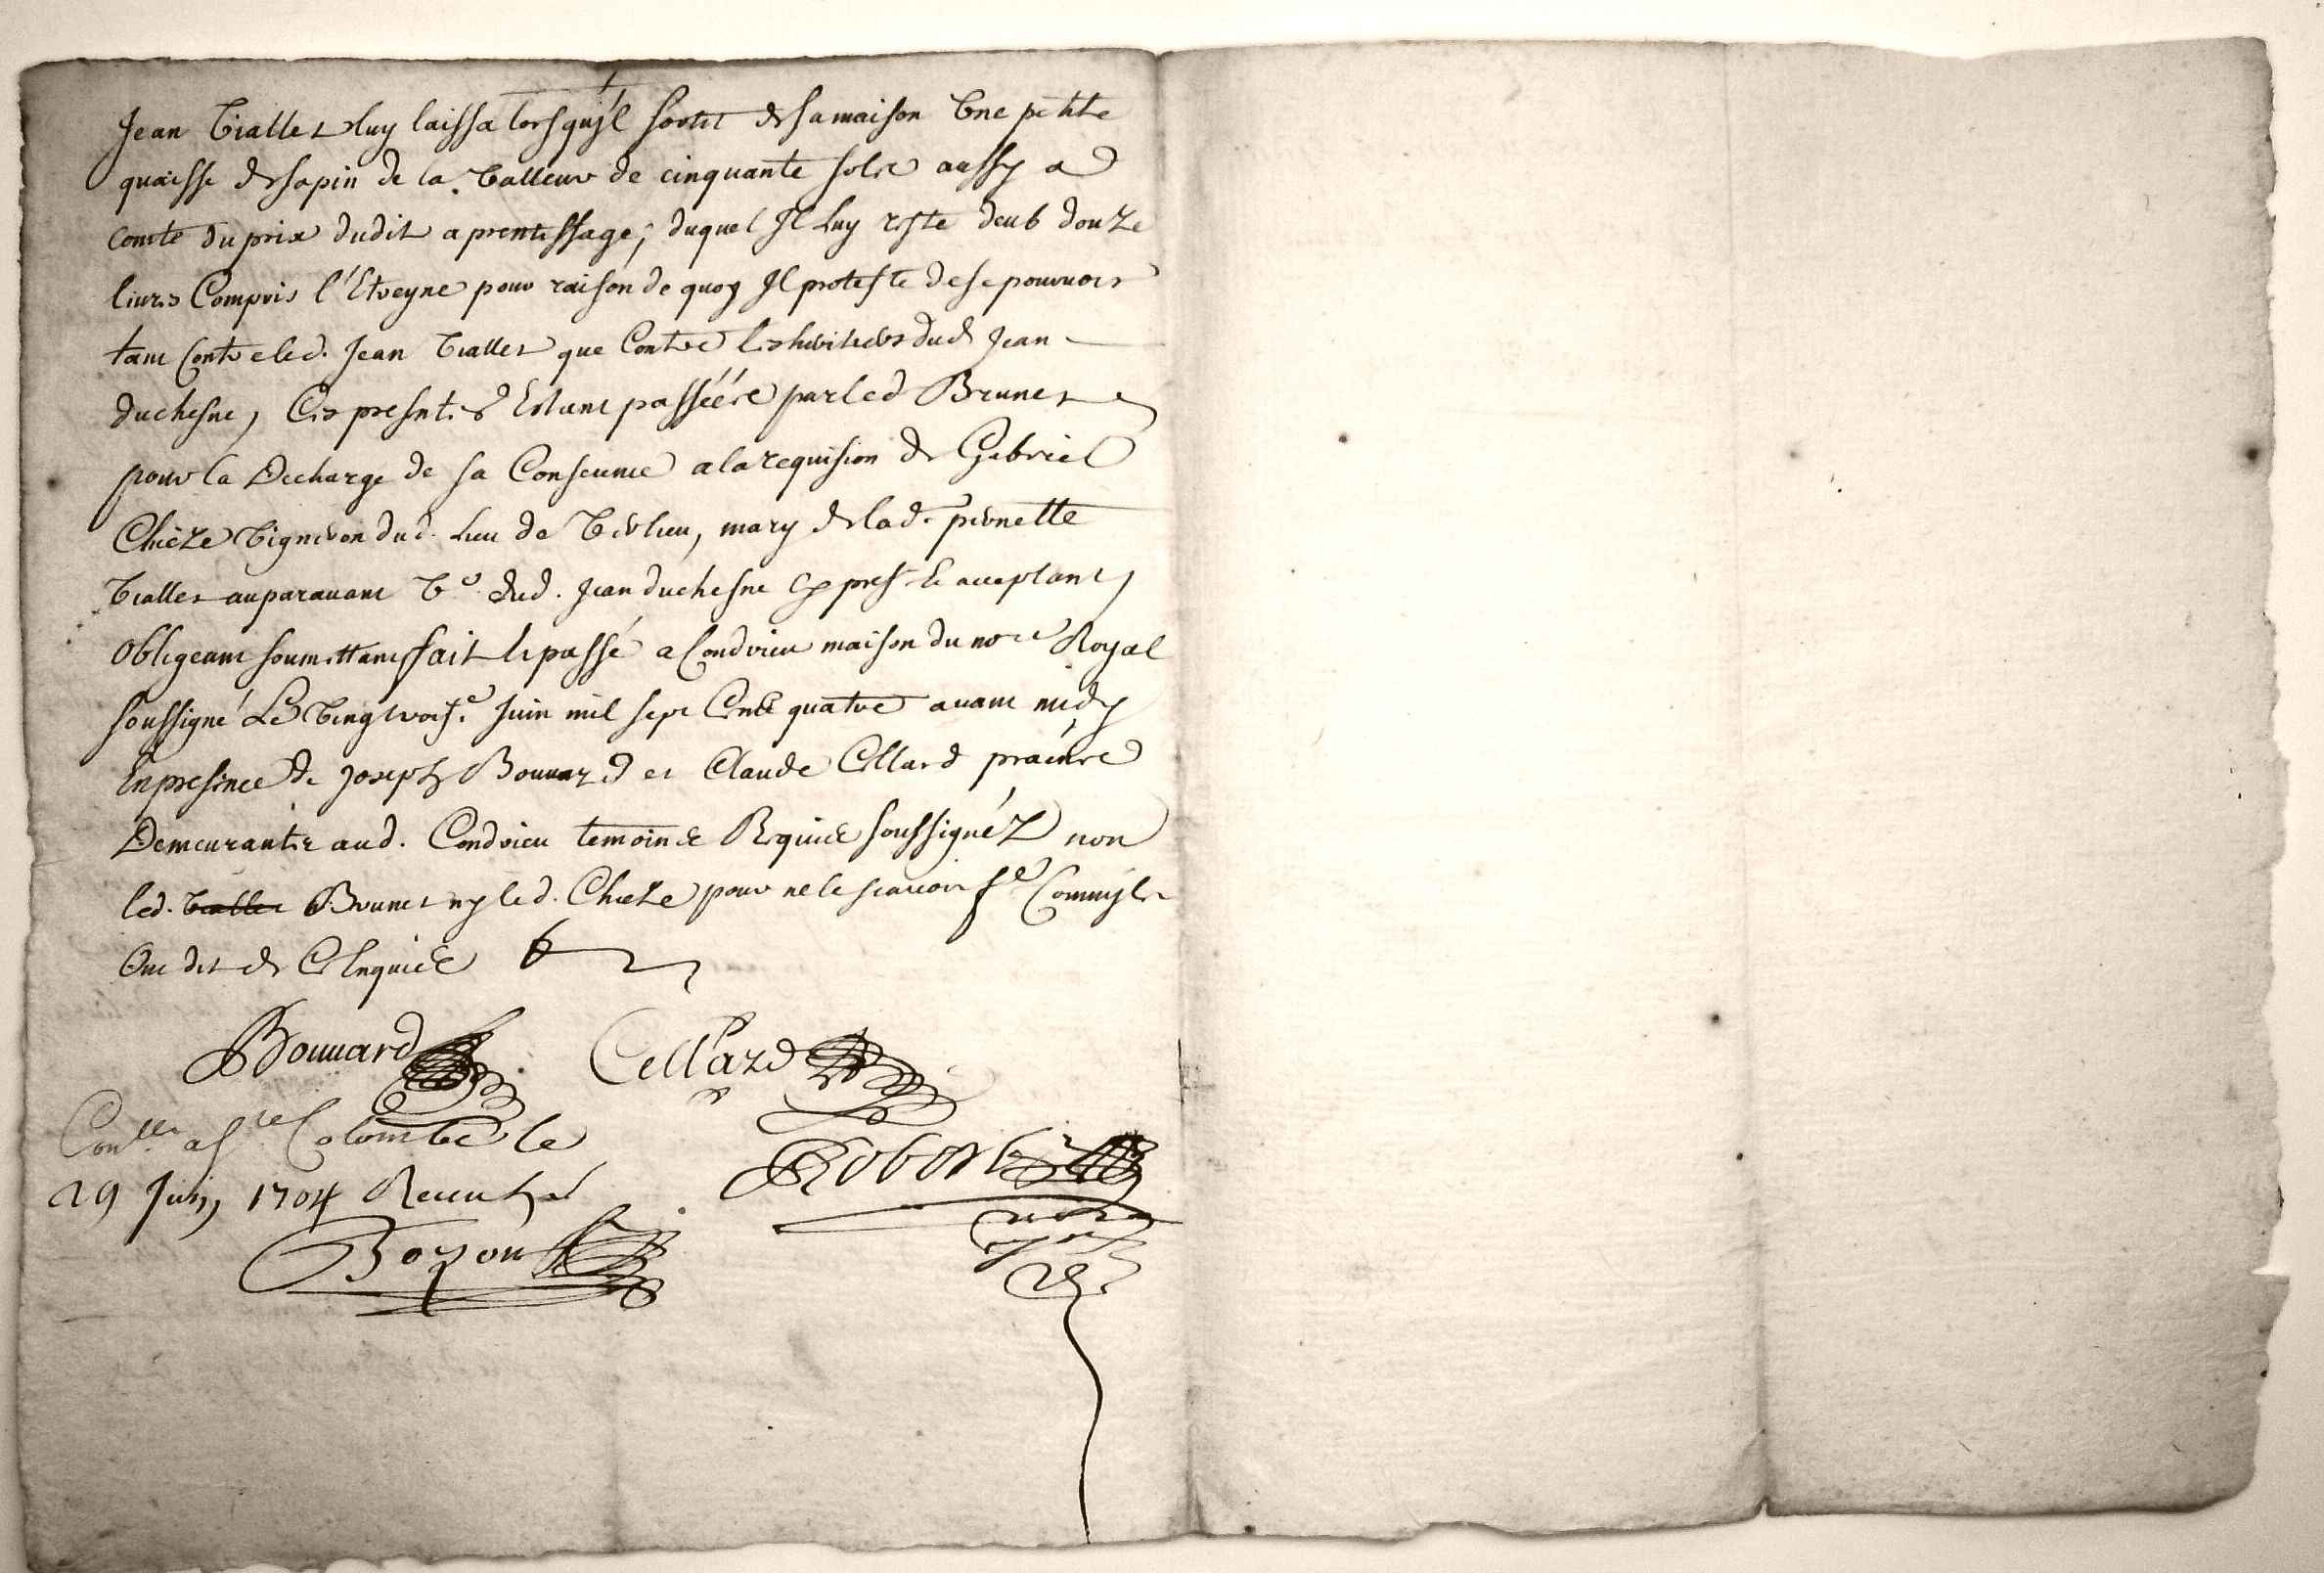 Jean Viallet luy laissa lorsqu'jl sortit de sa maison Vne petite
quaisse de sapin de la Valleur de cinquante sols aussy a
comte du prix dudit aprentissage; duquel Jl Luy reste deub douze
liures Compris l'Etreyne pour raison de quoy Jl proteste de se pouruoir
tant Contre led. Jean Viallet que Contre les heritiers dud Jean
duchesne, Ces presentes Estant passéées par led Brunet
pour la Decharge de sa Conscience a la requision de Gabriel
Chieze Vigneron dud. Lieu de Verlieu, mary de lad. pernette
Viallet auparauant Ve. dud. Jean duchesne cy pres. & acceptant,
Obligeant soumettant fait & passé a Condrieu maison du nore Royal
soussigné Le Vingt trois.e Juin mil sept Cent quatre auant midy
En presence de Joseph Bouuard et Claude Cellard
Demeurants aud. Condrieu temoins Requis soussignéz non
led. Viallet Brunet ny led. Chieze pour ne le scauoir Comme jls
Ont dit de Ce Enquis
Bouuard Cellard
Con.lle a Ste Colombe le
29 Juin 1704 Receu
Robert
Boyon